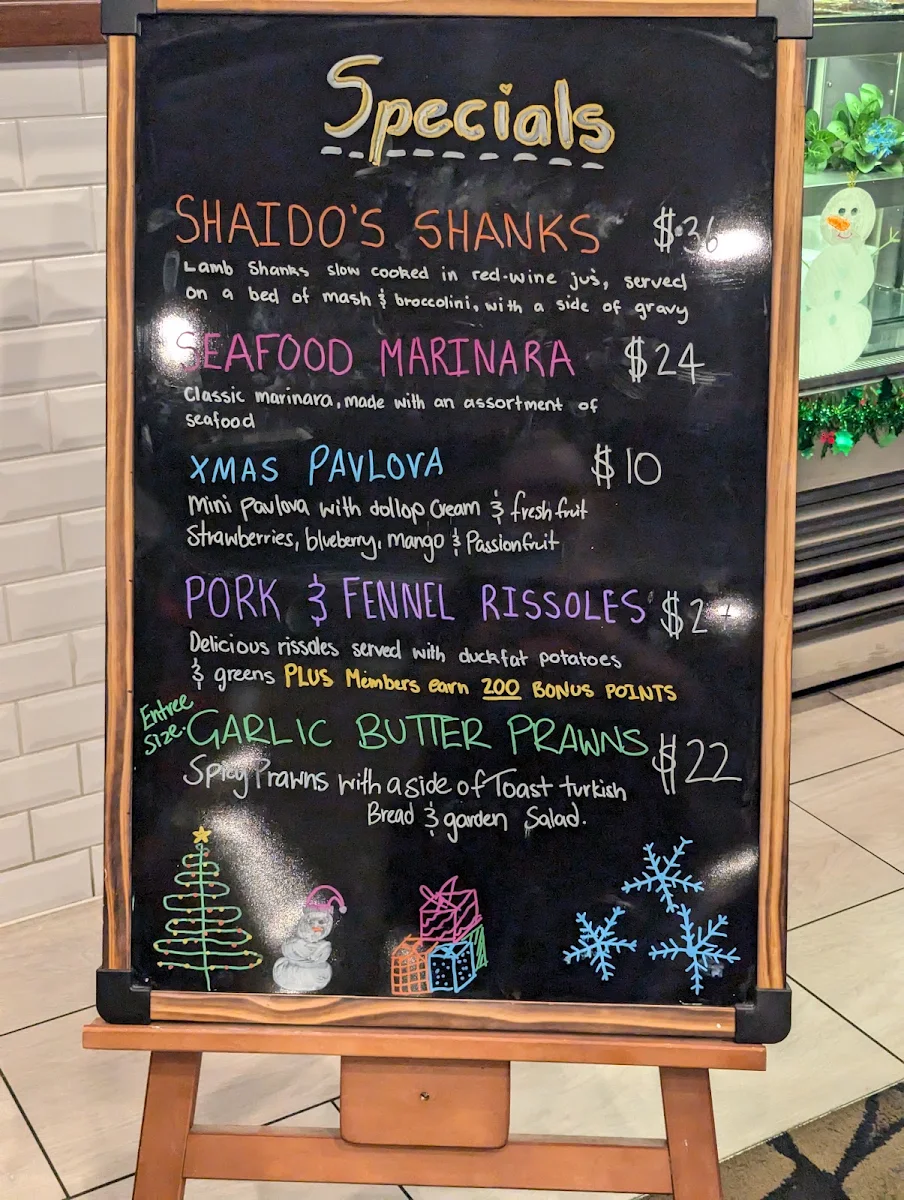 Specials
SHAIDO'S SHANKS $36
Lamb Shanks slow cooked in red-wine jus, served
on a bed of mash & broccolini, with a side of gravy
SEAFOOD MARINARA $24
Classic marinara, made with an assortment of
seafood
XMAS PAVLOVA $10
Mini Pavlova with dollop cream & fresh fruit
Strawberries, blueberry, mango & Passionfruit
PORK & FENNEL RISSOLES
Delicious rissoles served with duckfat potatoes
& greens PLUS Members earn 200 BONUS POINTS
Entree
Size: GARLIC BUTTER PRAWNS $22
Spicy Prawns with a side of Toast turkish
Bread & garden Salad.